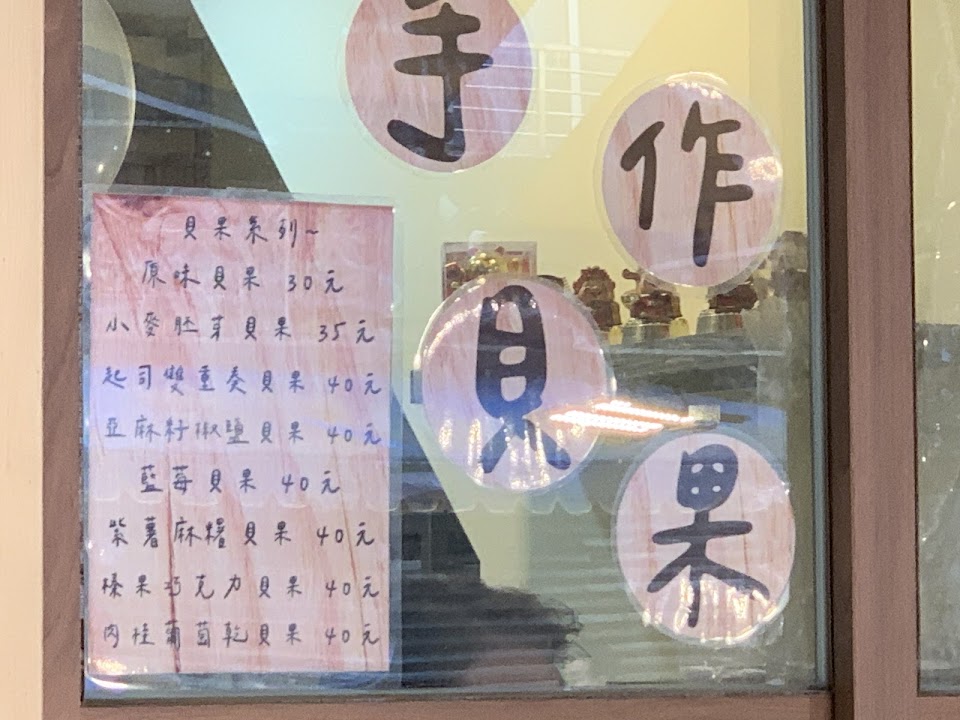 手
作
貝
果
貝果系列~
原味貝果 30元
小麥胚芽貝果 35元
起司雙重奏貝果 40元
亞麻籽椒鹽貝果 40元
藍莓貝果 40元
紫薯麻糬貝果 40元
榛果巧克力貝果 40元
肉桂葡萄乾貝果 40元